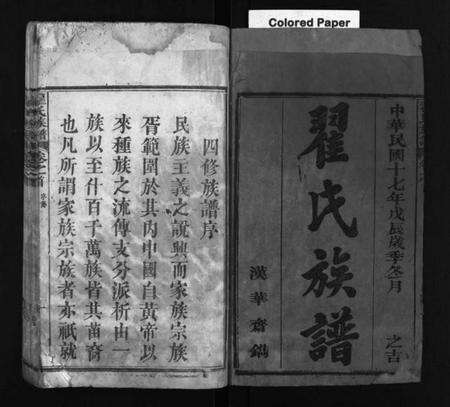 Colored Paper
中華民國十七年戊辰歲季冬月
之吉
翟氏族譜
漢華齋鐫
四修族譜序
民族主義之說興而家族宗族
胥範圍於其內中國自黃帝以
來種族之流傳支分派析由一
族以至什百千萬族皆其苗裔
也凡所謂家族宗族者亦祇就